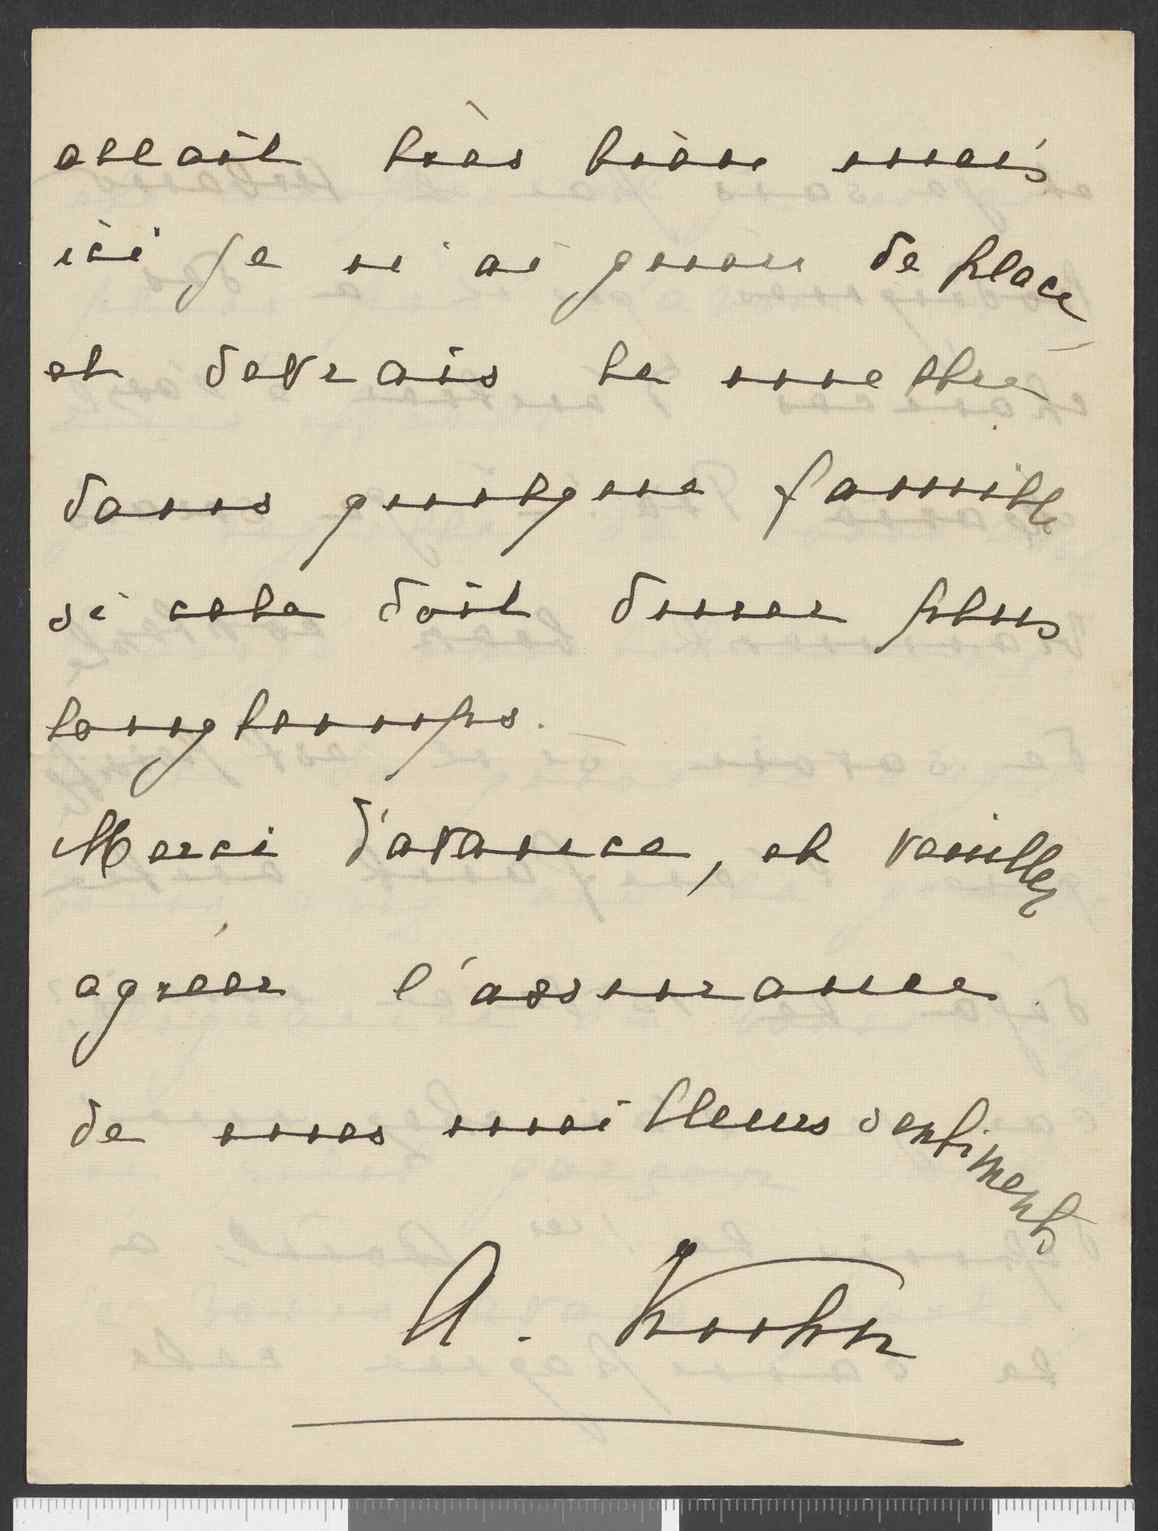 allait très bien mais
ici je n'ai guère de place
et devrais le mettre
dans quelque famille
si cela doit durer plus
longtemps.
Merci d'avance, et veuillez
agréer l'assurance
de mes meilleurs sentiments
A. Kuhn